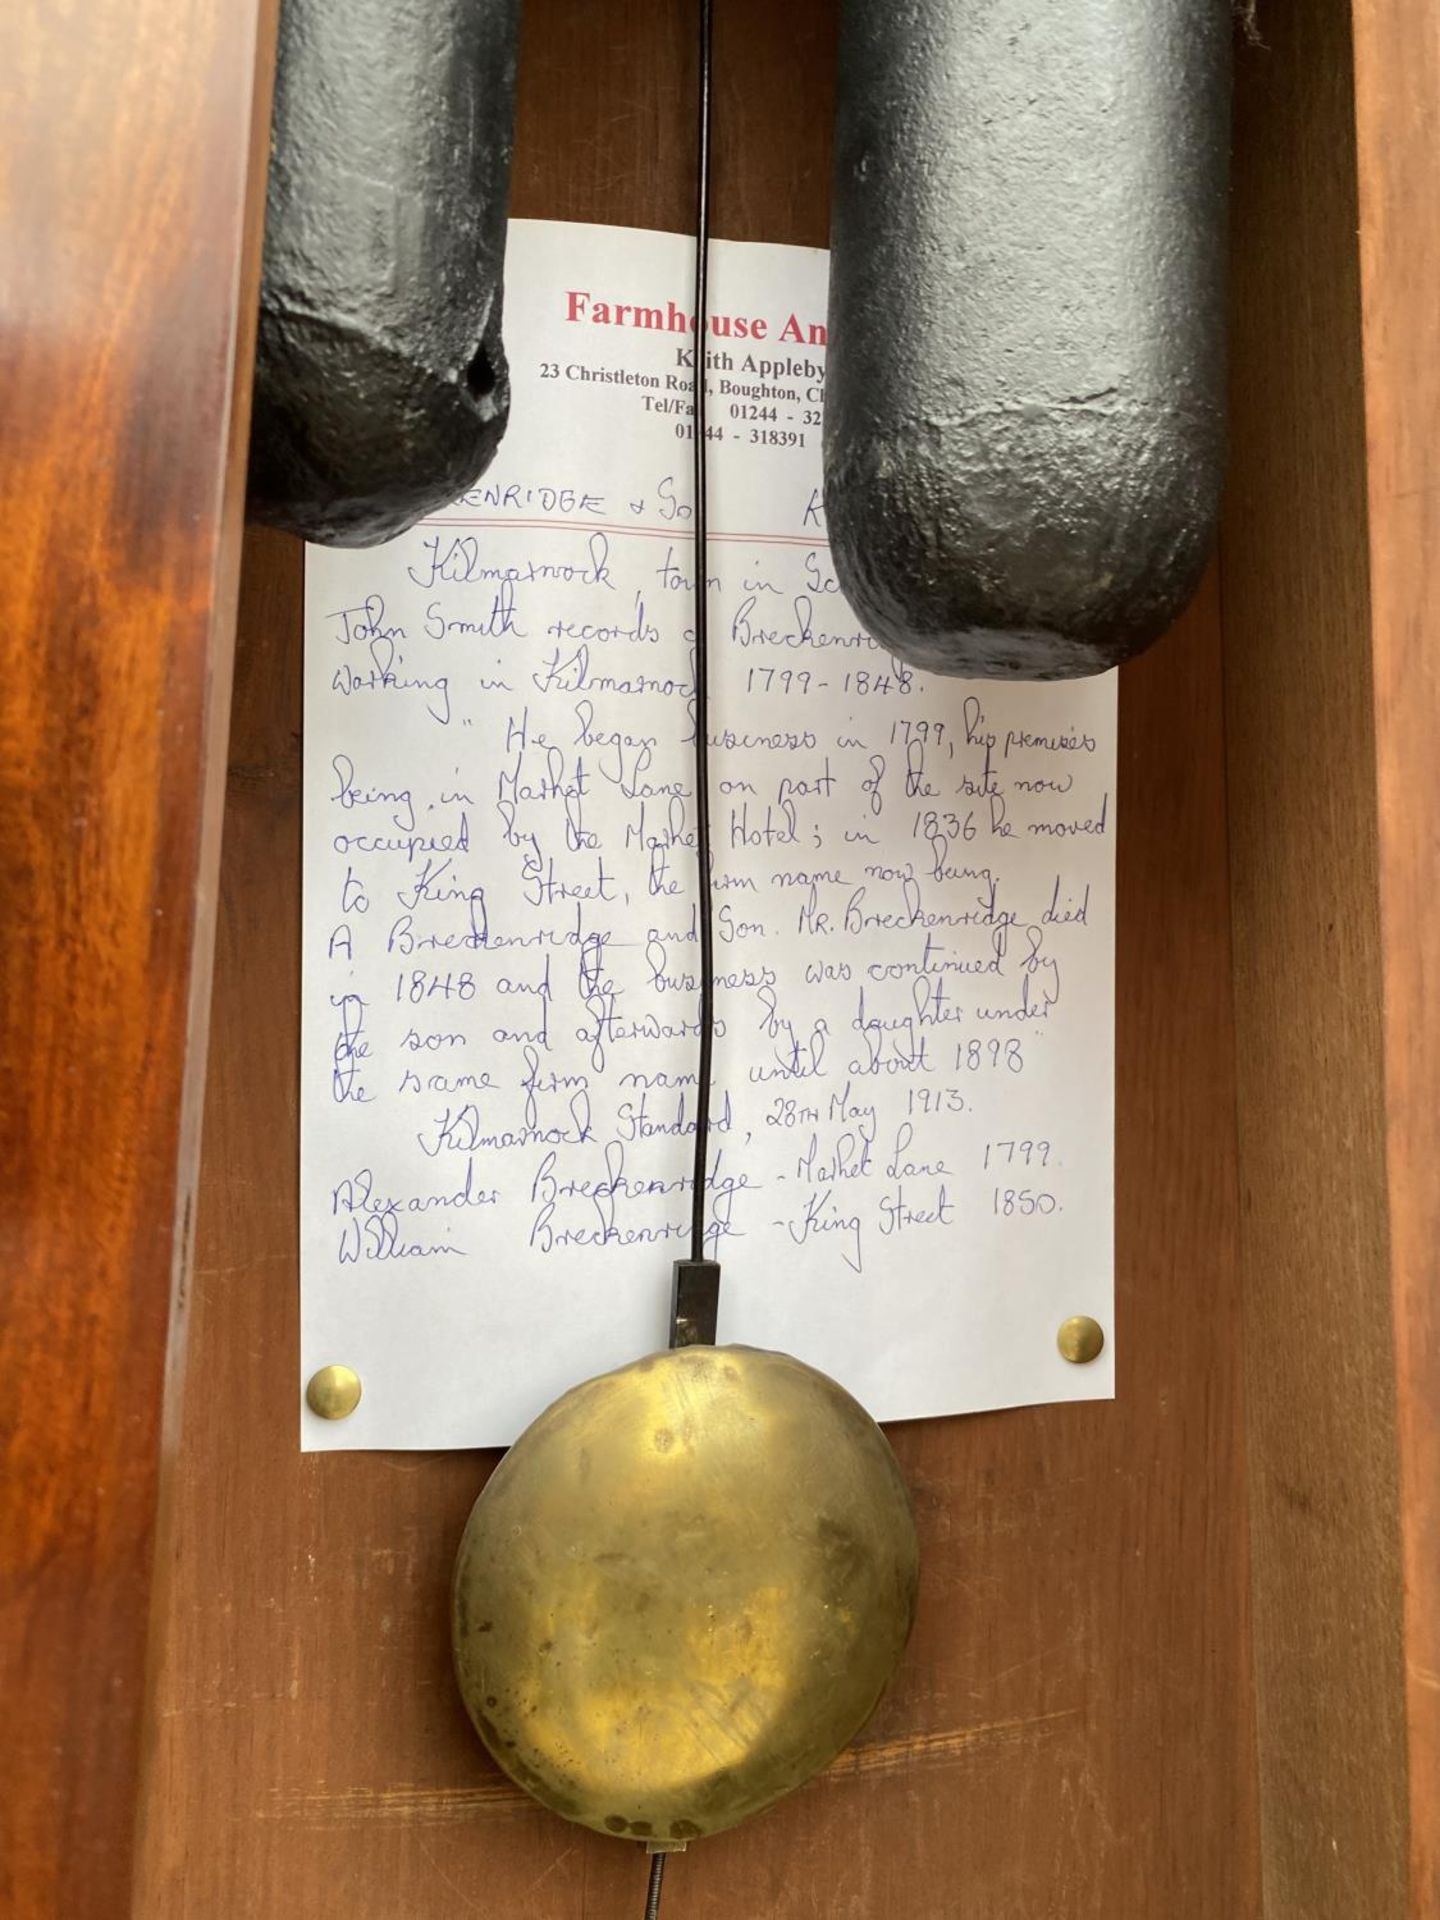 Farmhouse An
Keith Appleby
23 Christleton Road, Boughton, Ch
Tel/Fa 01244 - 32
01244 - 318391
ENRIDGE & So K
Kilmarnock, town in Sc
John Smith records a Breckenri
working in Kilmarnock 1799-1848.
" He began business in 1799, his premises
being in Market Lane on part of the site now
occupied by the Market Hotel; in 1836 he moved
to King Street, the firm name now being.
A Breckenridge and Son. MR. Breckenridge died
in 1848 and the business was continued by
the son and afterwards by a daughter under
the same firm name until about 1898"
Kilmarnock Standard, 28TH May 1913.
Alexander Breckenridge - Market Lane 1799.
William Breckenridge - King Street 1850.